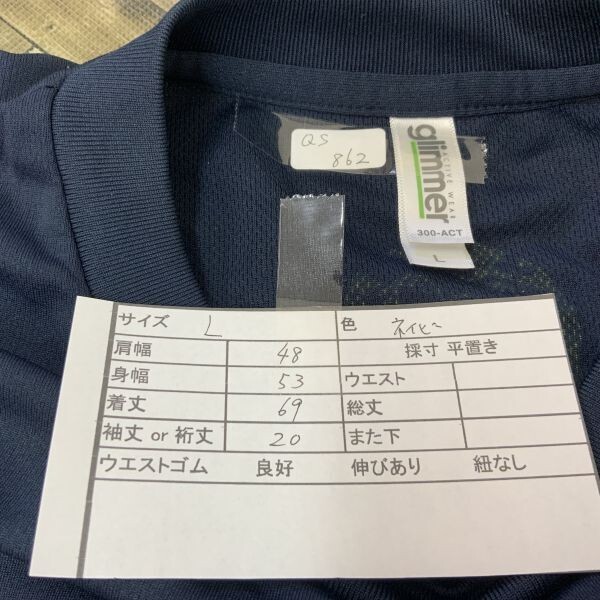 QS
862
glimmer
ACTIVE WEAR
300-ACT
L
サイズ L 色 ネイビー
肩幅 48 採寸 平置き
身幅 53 ウエスト
着丈 69 総丈
袖丈 or 裄丈 20 また下
ウエストゴム 良好 伸びあり 紐なし